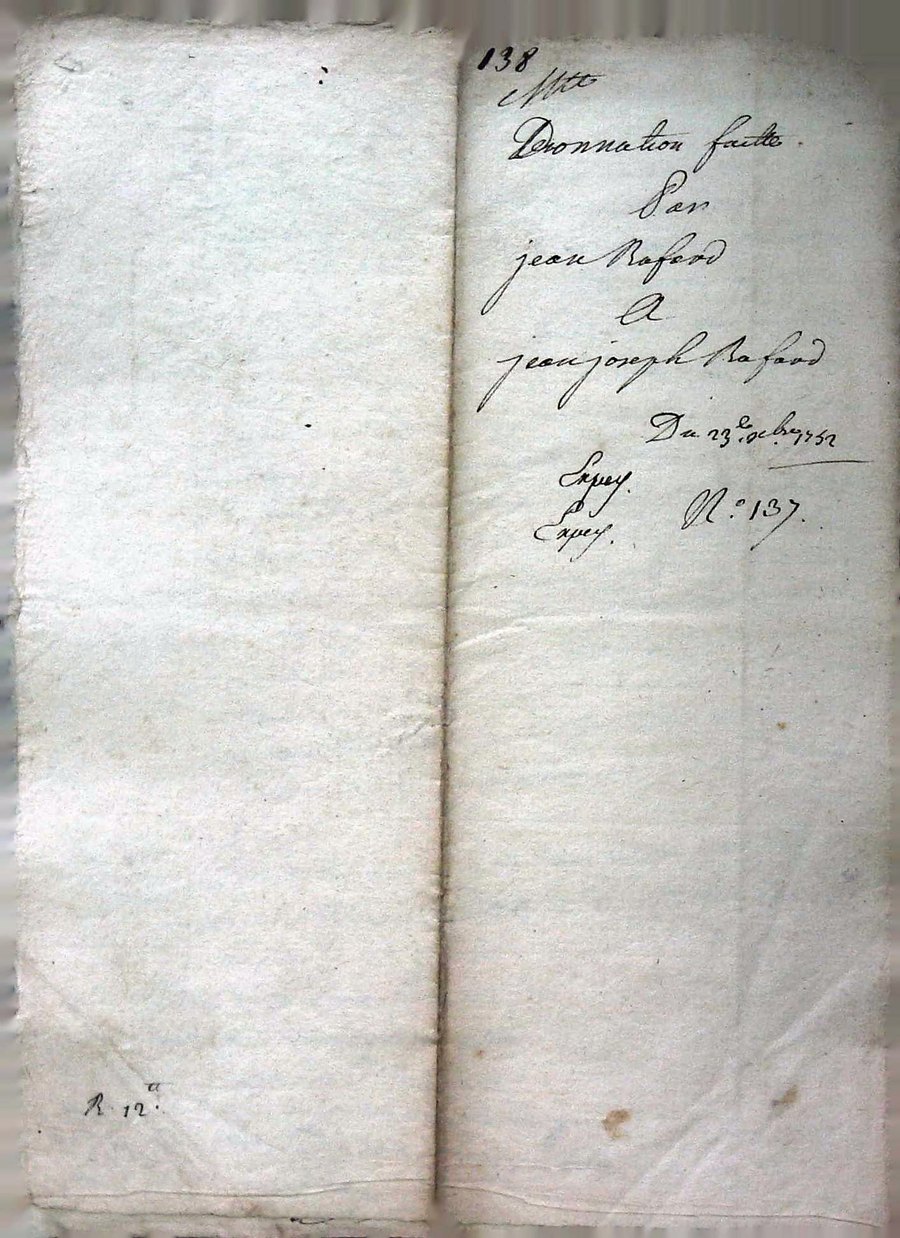 138
Donnation faitte
Par
jean Rafard
A
jean joseph Rafard
Du 23e xbre 1752
Expey.
Expey.
N.° 137.
R. 12.